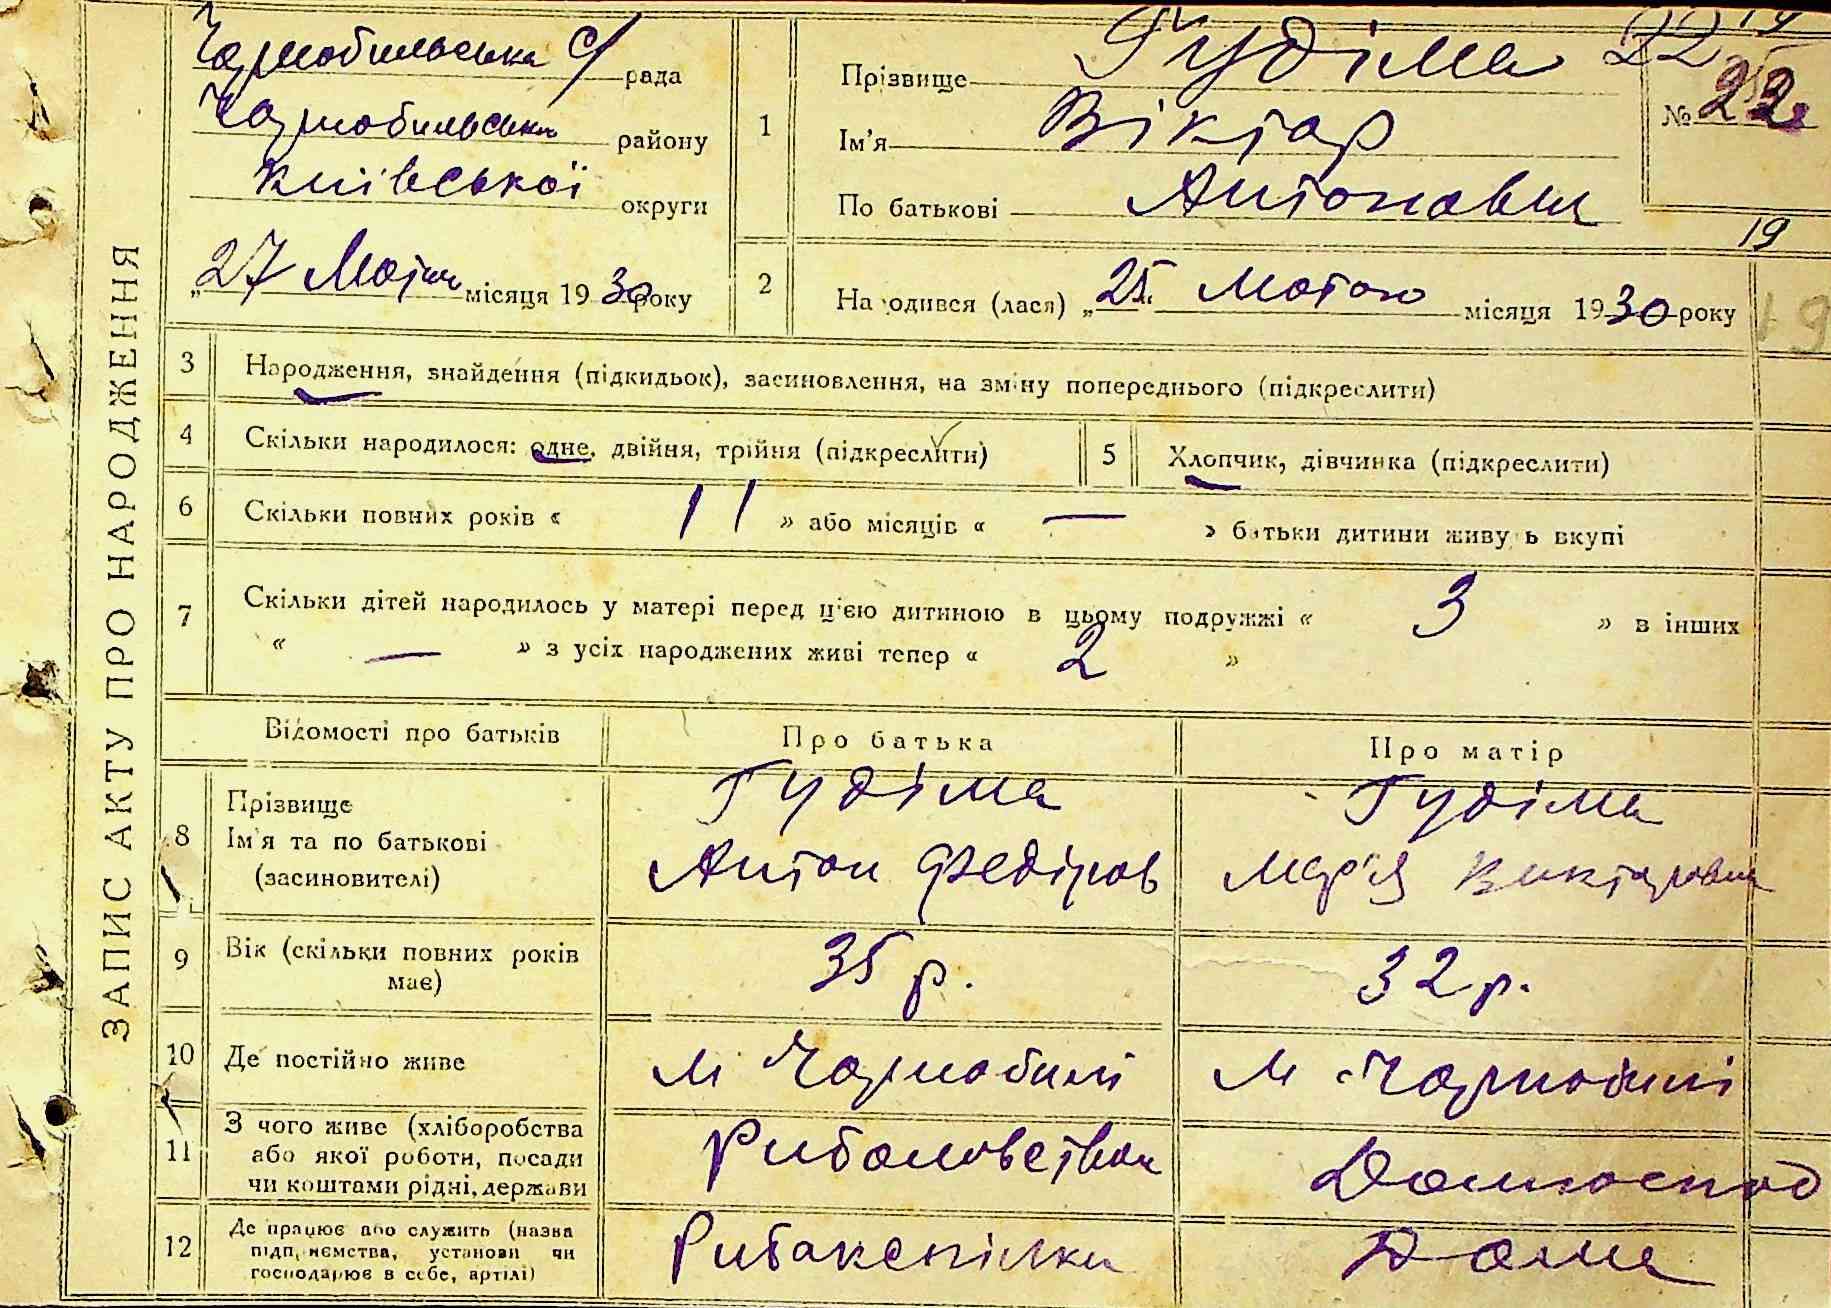 ЗАПИС АКТУ ПРО НАРОДЖЕННЯ
Чорнобильська с/рада
Чорнобильськ району
Київської округи
„27 місяця 1930 року
1
Прізвище Гудіма
Ім'я Віктор
По батькові Антонович
22
№ 22
19
2
Народився (лася) „25" Лютого місяця 1930 року
19
3
Народження, знайдення (підкидьок), засиновлення, на зміну попереднього (підкреслити)
4
Скільки народилося: одне, двійня, трійня (підкреслити)
5
Хлопчик, дівчинка (підкреслити)
6
Скільки повних років « 11 » або місяців « — » батьки дитини живуть вкупі
7
Скільки дітей народилось у матері перед ц'єю дитиною в цьому подружжі « 3 » в інших
« — » з усіх народжених живі тепер « 2 »
Відомості про батьків
Про батька
Про матір
8
Прізвище
Ім'я та по батькові
(засиновителі)
Гудіма
Антон Федіров
Гудіма
Мар'я Викторовна
9
Вік (скільки повних років
має)
35 р.
32 р.
10
Де постійно живе
м Чорнобилі
м Чорнобилі
11
З чого живе (хліборобства
або якої роботи, посади
чи коштами рідні, держави
Риболовством
Домгоспод
12
Де працює або служить (назва
підприємства, установи чи
господарює в себе, артілі)
Рибакспілки
Дома